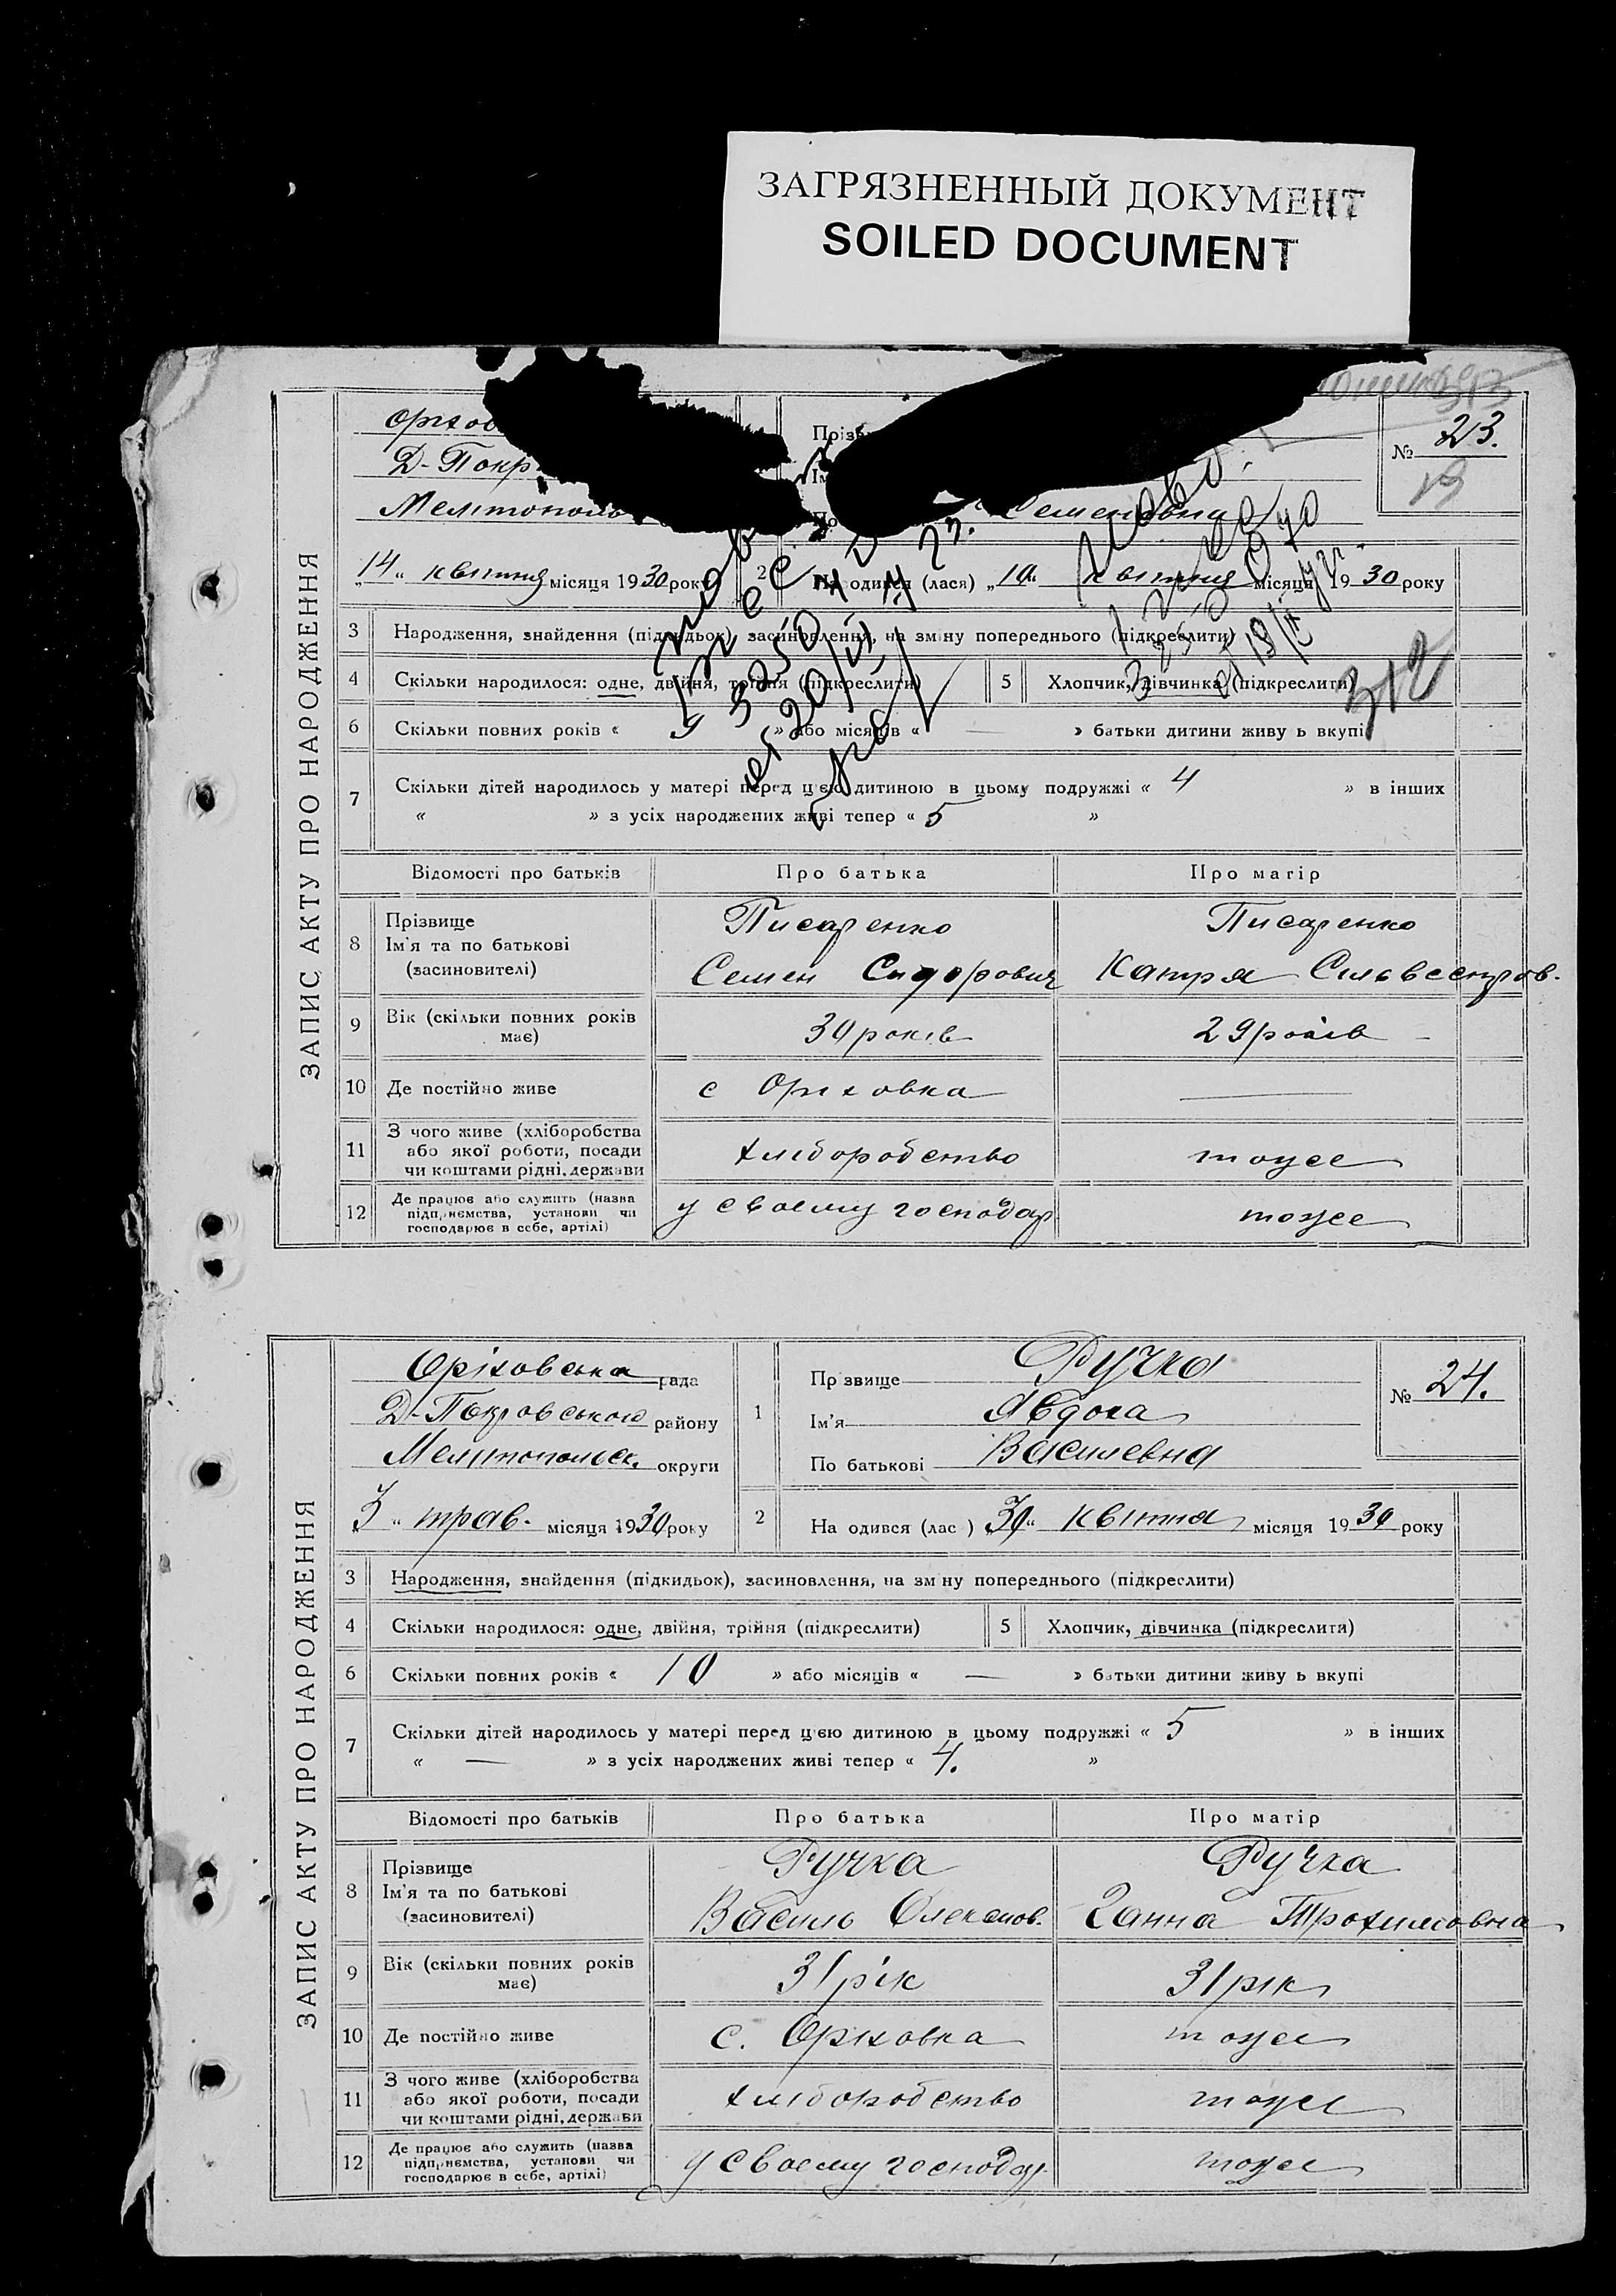 ЗАГРЯЗНЕННЫЙ ДОКУМЕНТ
SOILED DOCUMENT
ЗАПИС АКТУ ПРО НАРОДЖЕННЯ
№ 23.
19
Д-Покр
Мелітополь
Семеновна
„14“ квітня місяця 1930 року
2 На одився (лася) „10“ квітня місяця 1930 року
3 Народження, знайдення (підкидьок), засиновлення, на зміну попереднього (підкреслити)
4 Скільки народилося: одне, двійня, трійня (підкреслити)
5 Хлопчик, дівчинка (підкреслити)
312
6 Скільки повних років « 9 » або місяців « — » батьки дитини живу ь вкупі
7 Скільки дітей народилось у матері перед цією дитиною в цьому подружжі « 4 » в інших
« » з усіх народжених живі тепер « 5 »
Відомості про батьків Про батька Про матір
8 Прізвище Писаренко Писаренко
Ім'я та по батькові
(засиновителі) Семен Сидорович Катря Сильвестров.
9 Вік (скільки повних років має) 30 років 29 років
10 Де постійно живе с Оріховка —
11 З чого живе (хліборобства
або якої роботи, посади хліборобство тоже
чи коштами рідні, держави
12 Де працює або служить (назва
підприємства, установи чи у своему господар. тоже
господарює в себе, артілі)
ЗАПИС АКТУ ПРО НАРОДЖЕННЯ
Оріховська рада
Д-Покровського району
Мелітопольск. округи
3 “ трав. місяця 1930 року
1 Прізвище Ручка
Ім'я Явдоха
По батькові Василевна
№ 24.
2 На одився (лас ) 30“ квітня місяця 1930 року
3 Народження, знайдення (підкидьок), засиновлення, на зм ну попереднього (підкреслити)
4 Скільки народилося: одне, двійня, трійня (підкреслити)
5 Хлопчик, дівчинка (підкреслити)
6 Скільки повних років « 10 » або місяців « — » батьки дитини живу ь вкупі
7 Скільки дітей народилось у матері перед цією дитиною в цьому подружжі « 5 » в інших
« — » з усіх народжених живі тепер « 4. »
Відомості про батьків Про батька Про матір
8 Прізвище Ручка Ручка
Ім'я та по батькові
(засиновителі) Василь Олексиов. Ганна Трохимовна
9 Вік (скільки повних років має) 31 рік 31 рік
10 Де постійно живе с. Оріховка тоже
11 З чого живе (хліборобства
або якої роботи, посади хліборобство тоже
чи коштами рідні, держави
12 Де працює або служить (назва
підприємства, установи чи у своему господар. тоже
господарює в себе, артілі)